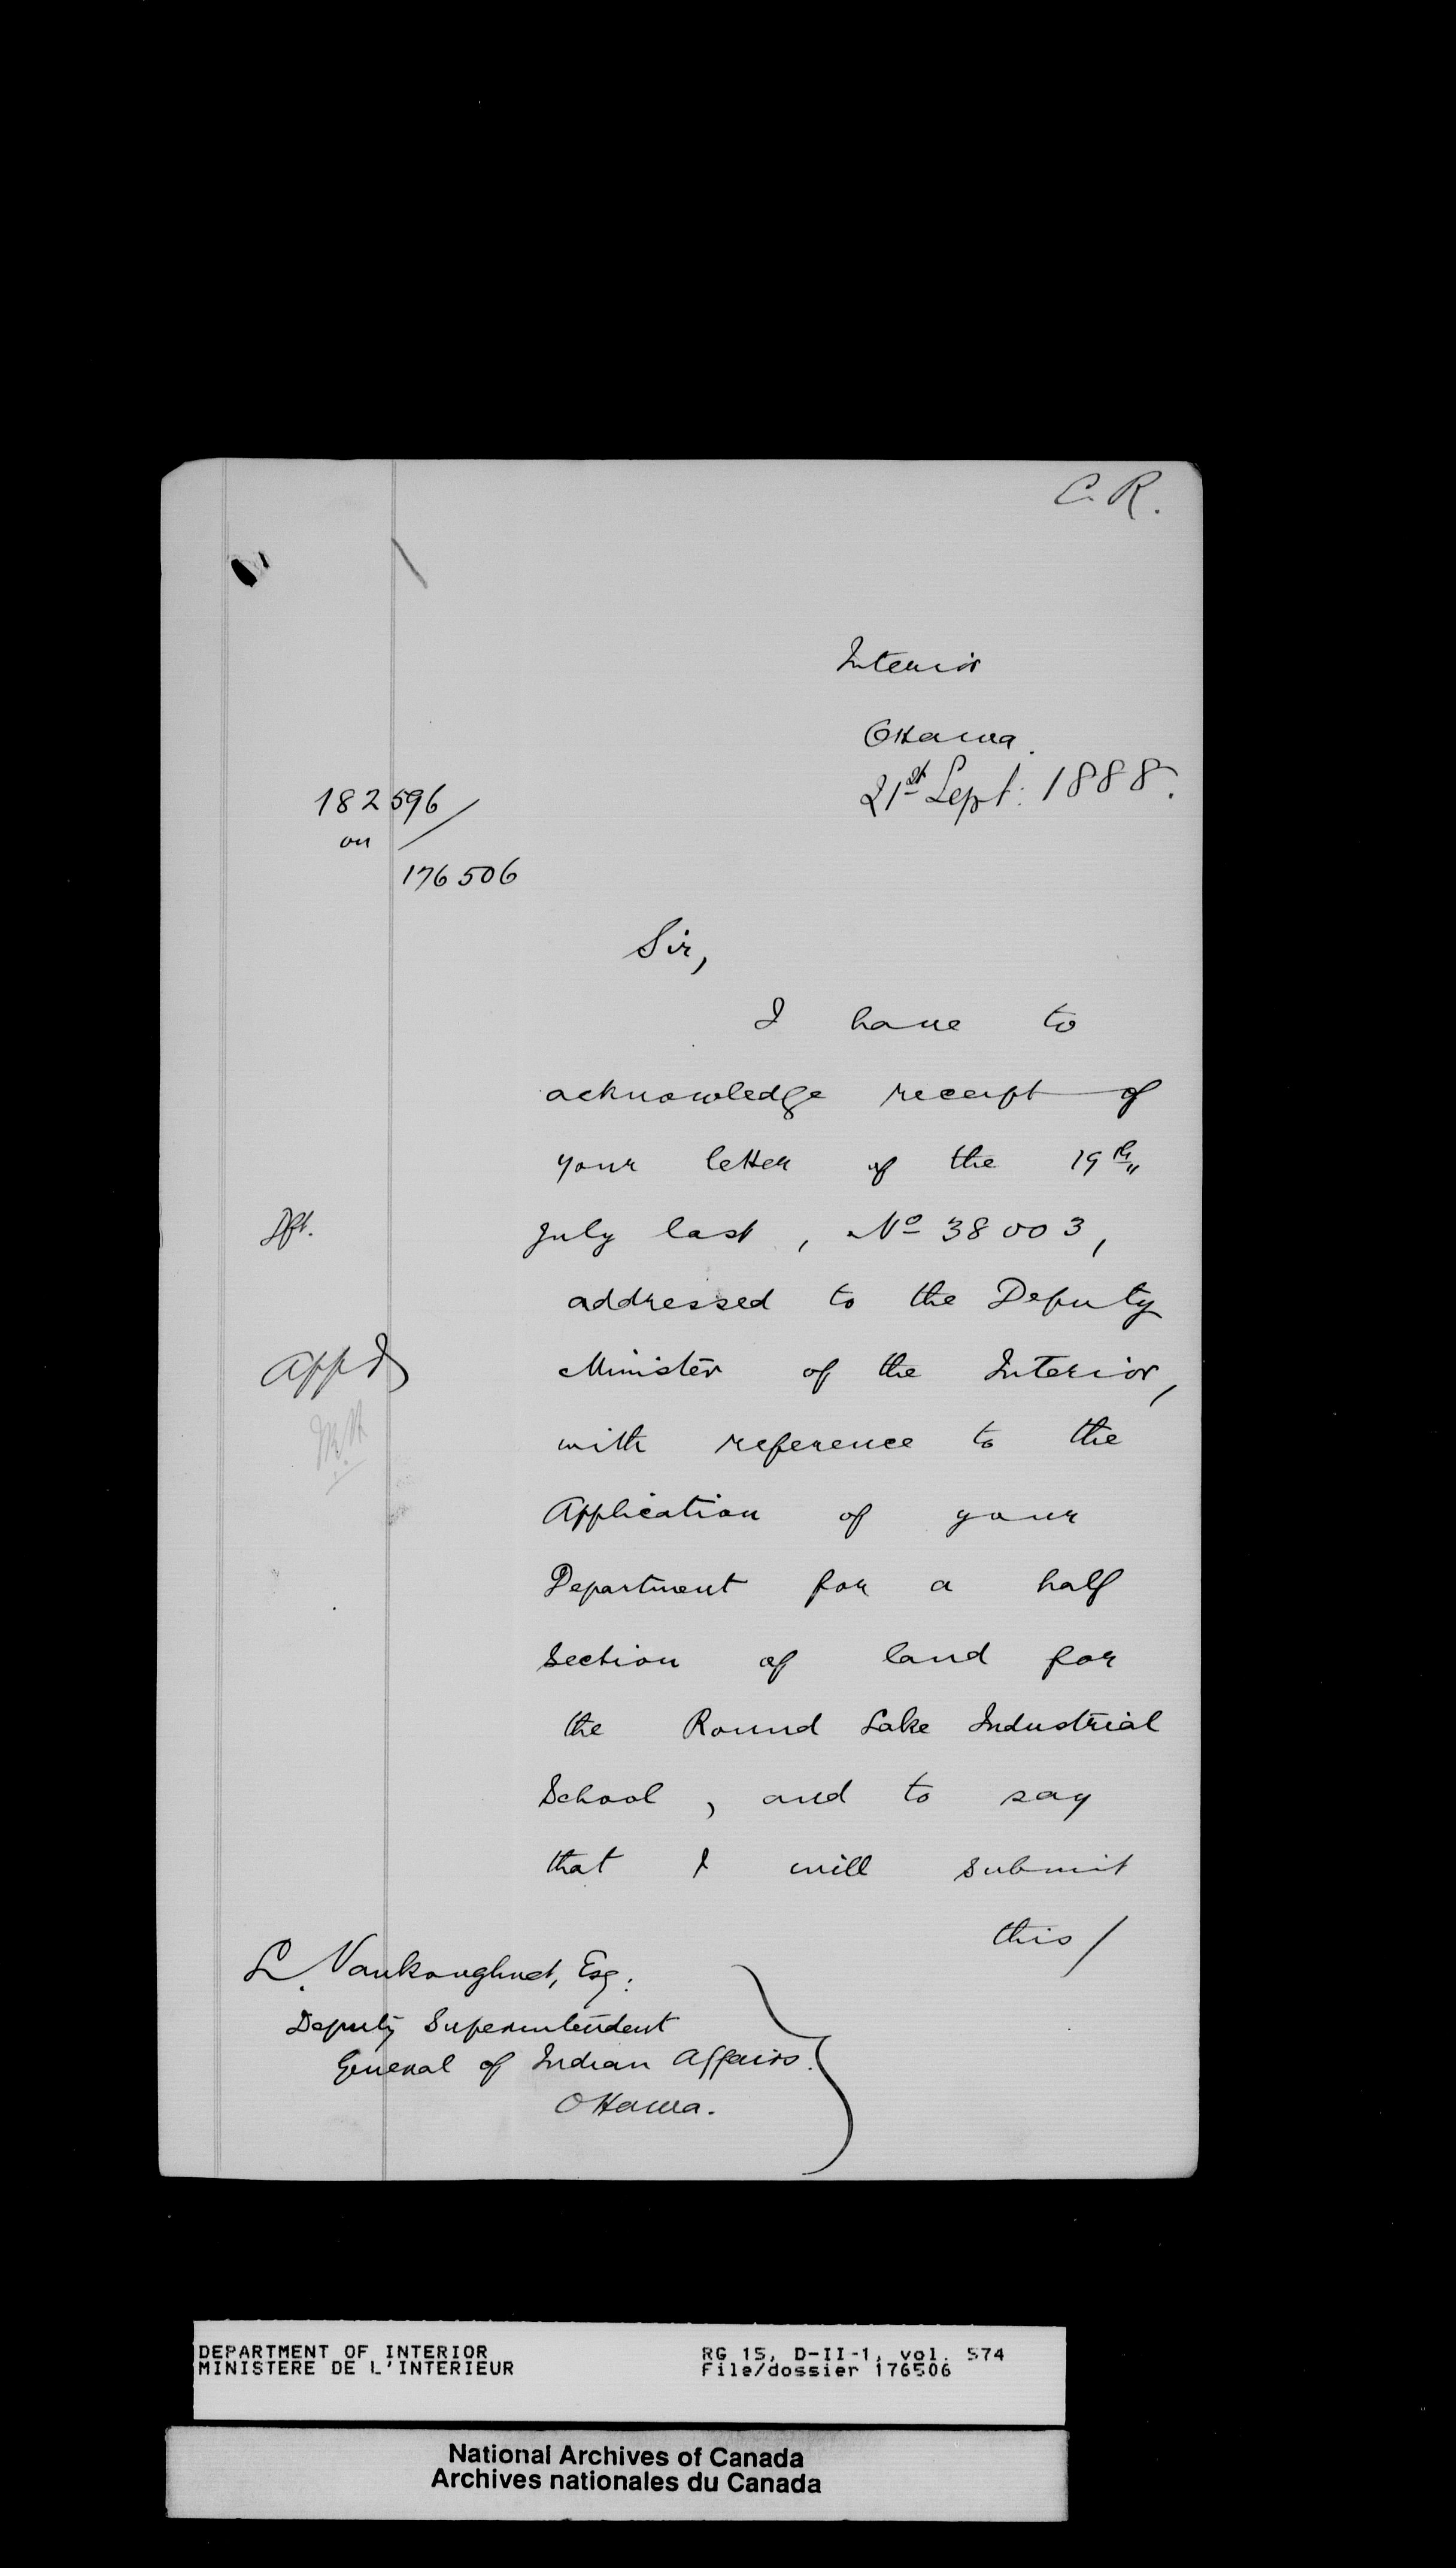 C. R.
Interior
Ottawa.
21st Sept: 1888.
182596/
on
176506
Sir,
I have to
acknowledge receipt of
your letter of the 19th
July last, No 38003,
Dft.
addressed to the Deputy
App'd
Minister of the Interior,
with reference to the
Application of your
Department for a half
Section of land for
the Round Lake Industrial
School, and to say
that I will submit
this/
L. Vankoughnet, Esq:
Deputy Superintendent
General of Indian Affairs.
Ottawa.
DEPARTMENT OF INTERIOR
MINISTERE DE L'INTERIEUR
RG 15, D-II-1, vol. 574
File/dossier 176506
National Archives of Canada
Archives nationales du Canada